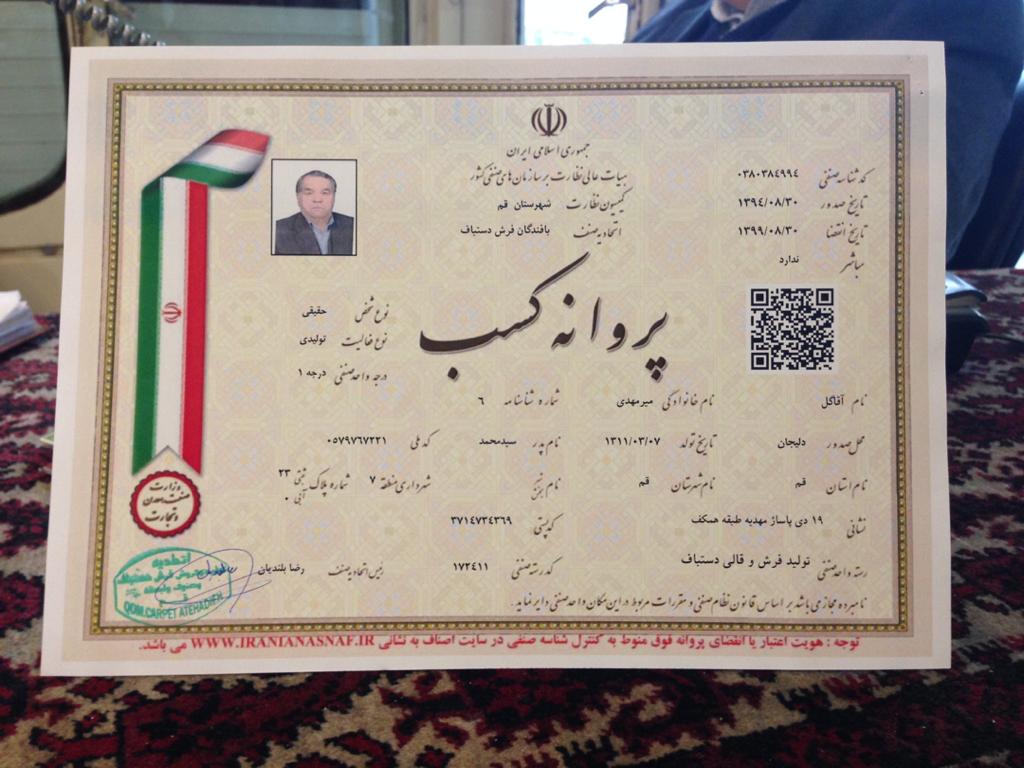 جمهوری اسلامی ایران
هیات عالی نظارت بر سازمان های صنفی کشور
کمیسیون نظارت شهرستان قم
اتحادیه صنف بافندگان فرش دستباف
کد شناسه صنفی ۰۳۸۰۳۸۴۹۹۴
تاریخ صدور ۱۳۹٤/۰۸/۳۰
تاریخ انقضا ۱۳۹۹/۰۸/۳۰
مباشر ندارد
پروانه کسب
نوع شخص حقیقی
نوع فعالیت تولیدی
درجه واحد صنفی درجه ۱
نام آقاگل نام خانوادگی میرمهدی شماره شناسنامه ۶
محل صدور دلیجان تاریخ تولد ۱۳۱۱/۰۳/۰۷ نام پدر سیدمحمد کد ملی ۰۵۷۹۷۶۷۲۲۱
نام استان قم نام شهرستان قم نام شهرداری منطقه ۷ شماره پلاک ثبتی ۲۳ آبی ۰
نشانی ۱۹ دی پاساژ مهدیه طبقه همکف کد پستی ۳۷۱٤۷۳٤۳۶۹
رسته واحد صنفی تولید فرش و قالی دستباف کد رسته صنفی ۱۷۲٤۱۱ رئیس اتحادیه صنف رضا بلندیان
نامبرده مجاز می باشد بر اساس قانون نظام صنفی و مقررات مربوط در این مکان واحد صنفی دایر نماید.
وزارت
صنعت، معدن
و تجارت
اتحادیه
قم
QOM.CARPET ATEHADIEH
توجه : هویت اعتبار یا انقضای پروانه فوق منوط به کنترل شناسه صنفی در سایت اصناف به نشانی WWW.IRANIANASNAF.IR می باشد.